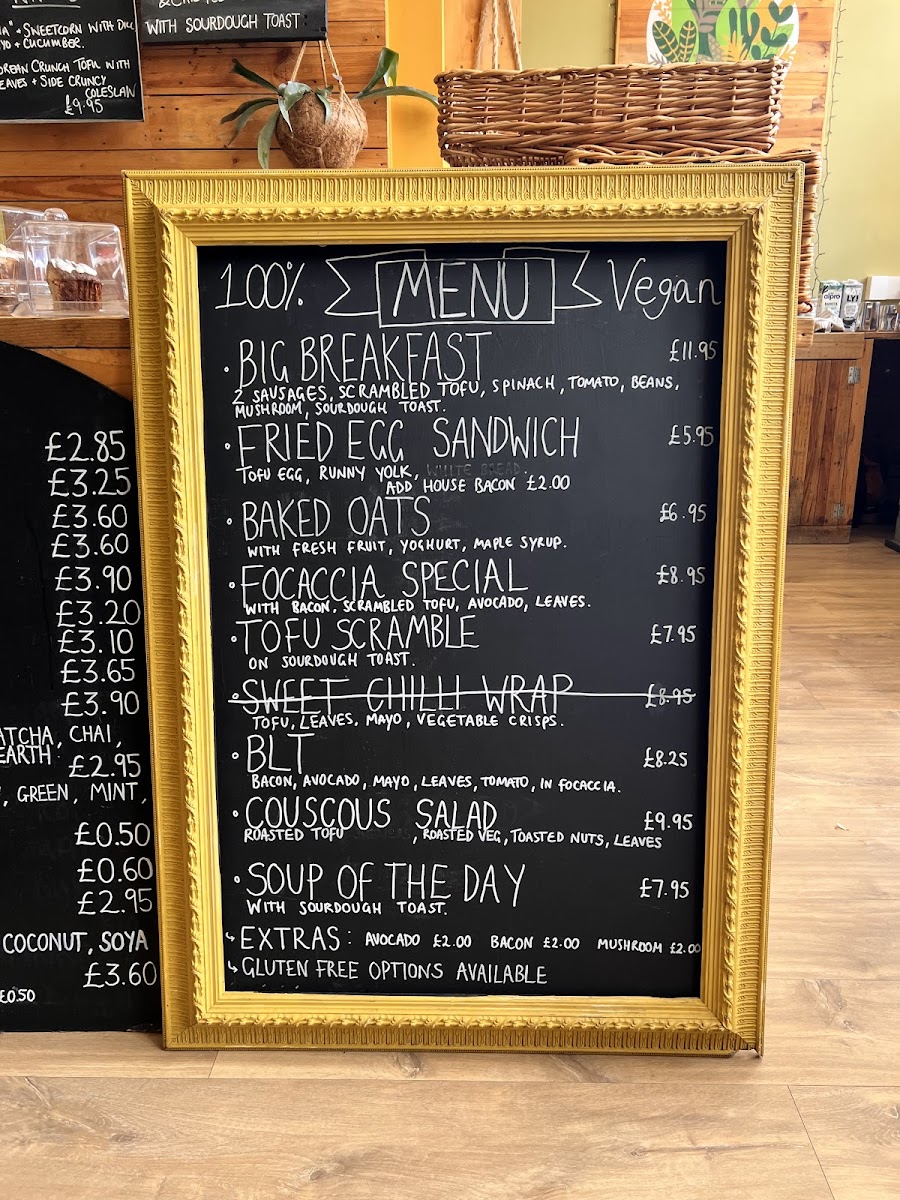 " + SWEETCORN WITH
+ CUCUMBER.
CRUNCH TOFU WITH
+ SIDE CRUNCY
COLESLAW
£9.95
WITH SOURDOUGH TOAST
100% MENU Vegan
• BIG BREAKFAST £11.95
2 SAUSAGES, SCRAMBLED TOFU, SPINACH, TOMATO, BEANS,
MUSHROOM, SOURDOUGH TOAST.
• FRIED EGG SANDWICH £5.95
TOFU EGG, RUNNY YOLK, WHITE BREAD.
ADD HOUSE BACON £2.00
• BAKED OATS £6.95
WITH FRESH FRUIT, YOGHURT, MAPLE SYRUP.
• FOCACCIA SPECIAL £8.95
WITH BACON, SCRAMBLED TOFU, AVOCADO, LEAVES.
• TOFU SCRAMBLE £7.95
ON SOURDOUGH TOAST.
• SWEET CHILLI WRAP £8.95
TOFU, LEAVES, MAYO, VEGETABLE CRISPS.
• BLT £8.25
BACON, AVOCADO, MAYO, LEAVES, TOMATO, IN FOCACCIA.
• COUSCOUS SALAD £9.95
ROASTED TOFU , ROASTED VEG, TOASTED NUTS, LEAVES
• SOUP OF THE DAY £7.95
WITH SOURDOUGH TOAST.
↳ EXTRAS: AVOCADO £2.00 BACON £2.00 MUSHROOM £2.00
↳ GLUTEN FREE OPTIONS AVAILABLE
£2.85
£3.25
£3.60
£3.60
£3.90
£3.20
£3.10
£3.65
£3.90
, CHAI,
£2.95
, GREEN, MINT,
£0.50
£0.60
£2.95
COCONUT, SOYA
£3.60
£0.50
alpro